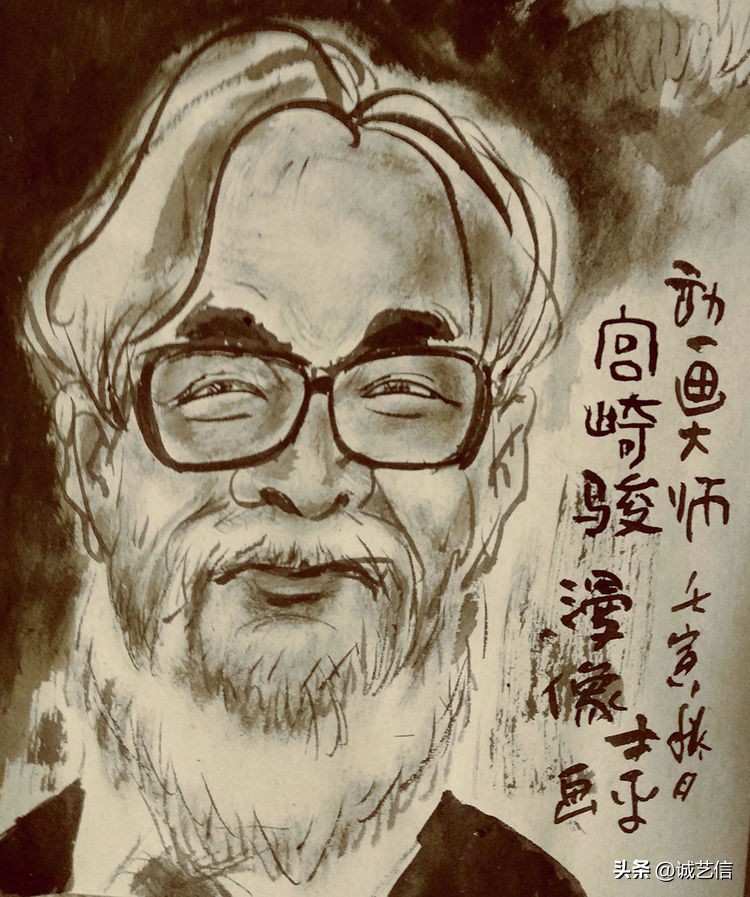 动画大师 壬寅秋日
宫崎骏漫像
画
头条 @诚艺信